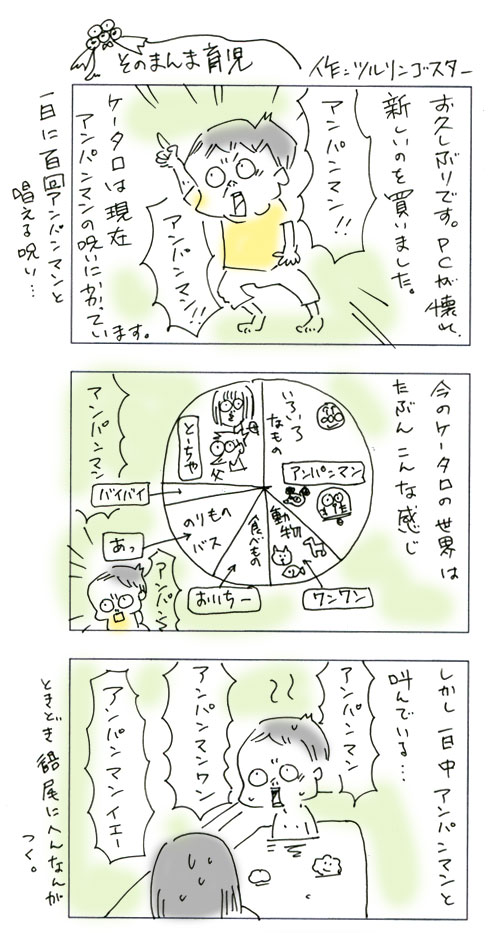 そのまんま育児
作:ツルリンゴスター
お久しぶりです。PCが壊れ、
新しいのを買いました。
アンパンマン!!
アンパンマン!!
ケータロは現在
アンパンマンの呪いにかかっています。
一日に百回アンパンマンと
唱える呪い…
今のケータロの世界は
たぶんこんな感じ
いろいろ
なもの
アンパンマン
動物
ワンワン
食べもの
おいちー
のりもの
バス
あっ
バイバイ
とーちゃ
父
アンパンマン
アンパンマン
しかし一日中アンパンマンと
叫んでいる…
アンパンマン
アンパンマンワン
アンパンマンイエー
ときどき語尾にへんなんが
つく。